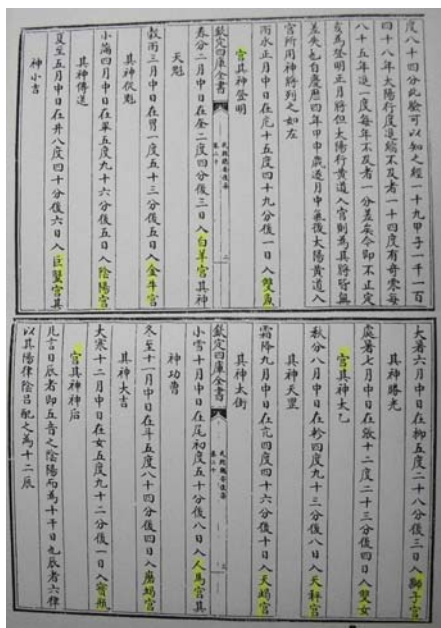 度八十四分此驗可以知之經一十九甲子一千一百
四十八年太陽行度進縮不及者一十四度有奇零每
八十五年退一度每年不及者一分差矣今即不正定
亥為登明正月將但太陽行黃道入宮則為其將所無
差失也自慶曆四年甲申歲逐月中氣後太陽黃道入
宮所用神將列之如左
雨水正月中日在危十五度四十九分後一日入雙魚
宮其神登明
欽定四庫全書
春分二月中日在奎二度四分後三日入白羊宮其神
天魁
穀雨三月中日在胃一度五十三分後五日入金牛宮
其神從魁
小滿四月中日在畢五度九十六分後五日入陰陽宮
其神傳送
夏至五月中日在井八度四十分後六日入巨蟹宮其
神小吉
大暑六月中日在柳五度二十八分後三日入獅子宮
其神勝光
處暑七月中日在張十二度二十三分後四日入雙女
宮其神太乙
秋分八月中日在軫四度九十三分後八日入天秤宮
其神天罡
霜降九月中日在亢四度四十六分後十日入天蝎宮
其神太衝
欽定四庫全書
小雪十月中日在尾初度五十分後八日入人馬宮其
神功曹
冬至十一月中日在斗五度八十四分後四日入磨蝎宮
其神大吉
大寒十二月中日在女五度九十二分後一日入寶瓶
宮其神神后
凡言日辰者即五音之陰陽而為十干日也辰者六律
以其陽律陰呂配之為十二辰